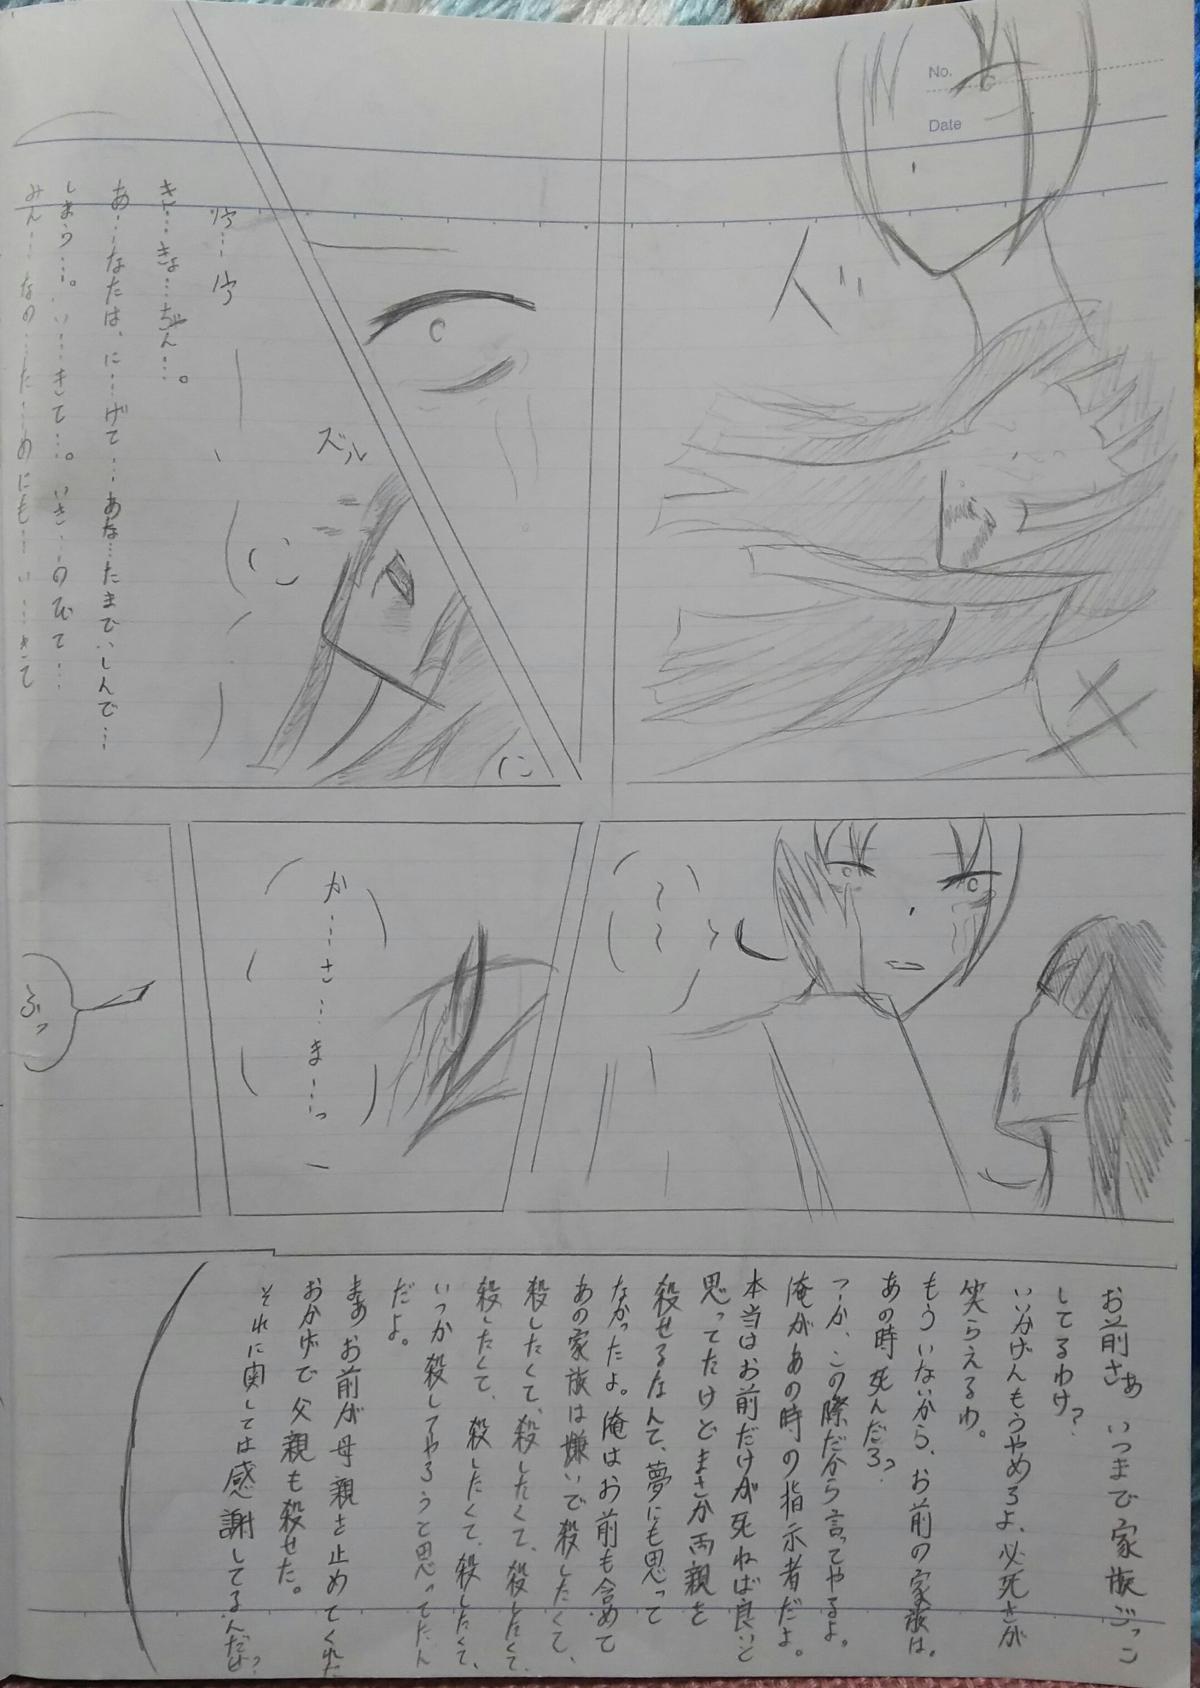 No.
Date
ズル
き…きょ…ちゃん…。
あ…なたは、に…げて…あな…たまで、しんで…
しまう…。い…きて…。いき…のびて…
みん…なの…た…めにも…い…きて
か…さ…ま…っ
ふっ
お前さぁ いつまで家族ごっこ
してるわけ?
いいかげんもうやめろよ、必死さが
笑らえるわ。
もういないから、お前の家族は。
あの時死んだろ?
つーか、この際だから言ってやるよ。
俺があの時の指示者だよ。
本当はお前だけが死ねば良いと
思ってたけどまさか両親を
殺せるなんて、夢にも思って
なかったよ。俺はお前も含めて
あの家族は嫌いで殺したくて、
殺したくて、殺したくて、殺したくて、
殺したくて、殺したくて、殺したくて、
いつか殺してやろうと思ってたん
だよ。
まぁお前が母親を止めてくれた
おかげで父親も殺せた。
それに関しては感謝してるんだぜ?